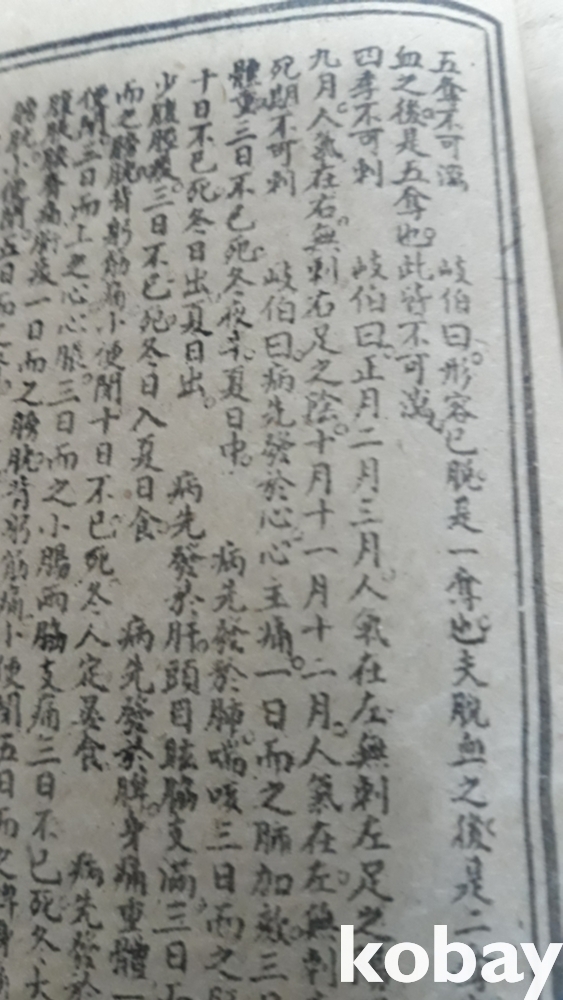 五奪不可瀉　岐伯曰形容已脫是一奪也夫脫血之後是二
血之後是五奪也此皆不可瀉
四季不可刺　岐伯曰正月二月三月人氣在左無刺左足之
九月人氣在右無刺右足之陰十月十一月十二月人氣在左無刺
死期不可刺　岐伯曰病先發於心心主痛一日而之肺加欬三
體重三日不已死冬夜半夏日中　病先發於肺喘咳三日而之
十日不已死冬日出夏日出　病先發於肝頭目眩脇支滿三日
少腹腰 三日不已死冬日入夏日食　病先發於脾身痛重體一
而之膀胱背 筋痛小便閉十日不已死冬人定晏食　病先發於
便閉三日而上之心心脹三日而之小腸兩脇支痛三日不已死冬大
一日而之膀胱背 筋痛小便閉五日而之脾身
小便閉五日而之
kobay